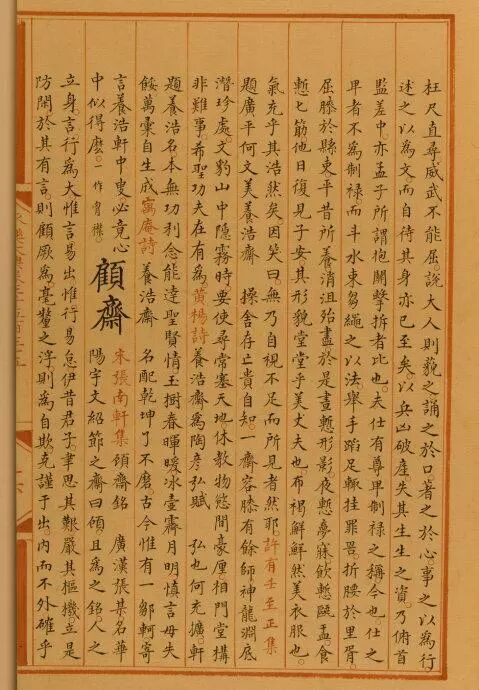 枉尺直尋威武不能屈說大人則貌之誦之於口著之於心事之以為行
述之以為文而自待其身亦已至矣以兵凶破產失其生生之資乃俯首
監差中亦孟子所謂抱關擊拆者比也夫仕有尊卑制祿之稱今也仕之
卑者不為制祿而斗水束芻繩之以法舉手蹈足輒挂罪罟折腰於里胥
屈膝於縣東平昔所養消沮殆盡於是晝慙形影夜慙夢寐飲慙甌盂食
慙匕筯他日復見子安其形貌堂堂乎美丈夫也布褐鮮鮮然美衣服也
氣充乎其浩然矣因笑曰無乃自視不足而所見者然耶許有壬至正集
題廣平何文美養浩齋　操舍存亡貴自知一齋容膝有餘師神龍淵底
潛珍處文豹山中隱霧時要使尋常塞天地休教物慾間豪厘相門堂構
非難事希聖功夫在有為黃楊詩養浩齋為陶彥弘賦　弘也何充擴軒
題養浩名本無功利念能達聖賢情玉樹春暉暖冰壺霽月明慎言毋失
餒萬彙自生成寓庵詩　養浩齋　名配乾坤了不磨古今惟有一鄒軻寄
言養浩軒中叟必竟心
中似得麽一作肯磯
顧齋
宋張南軒集顧齋銘　廣漢張某名華
陽宇文紹節之齋曰顧且為之銘人之
立身言行為大惟言易出惟行易怠伊昔君子聿思其艱嚴其樞機立是
防閑於其有言則顧厥為毫釐之浮則為自欺克謹于出內而不外確乎